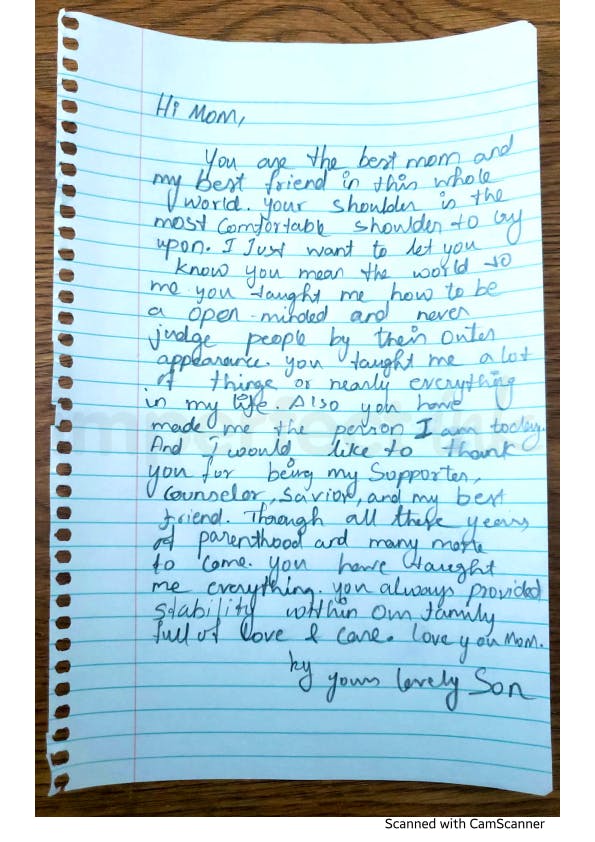 Hi Mom,
You are the best mom and
my best friend in this whole
world. Your shoulder is the
most comfortable shoulder to lay
upon. I Just want to let you
know you mean the world to
me you taught me how to be
a open-minded and never
judge people by their outer
appearance. you taught me a lot
of things or nearly everything
in my life. Also you have
made me the person I am today.
And I would like to thank
you for being my Supporter,
Counselor, Savior, and my best
friend. Through all these years
of parenthood and many more
to come. you have taught
me everything. you always provided
stability within our family
full of love & care. love you Mom.
by yours lovely Son
Scanned with CamScanner